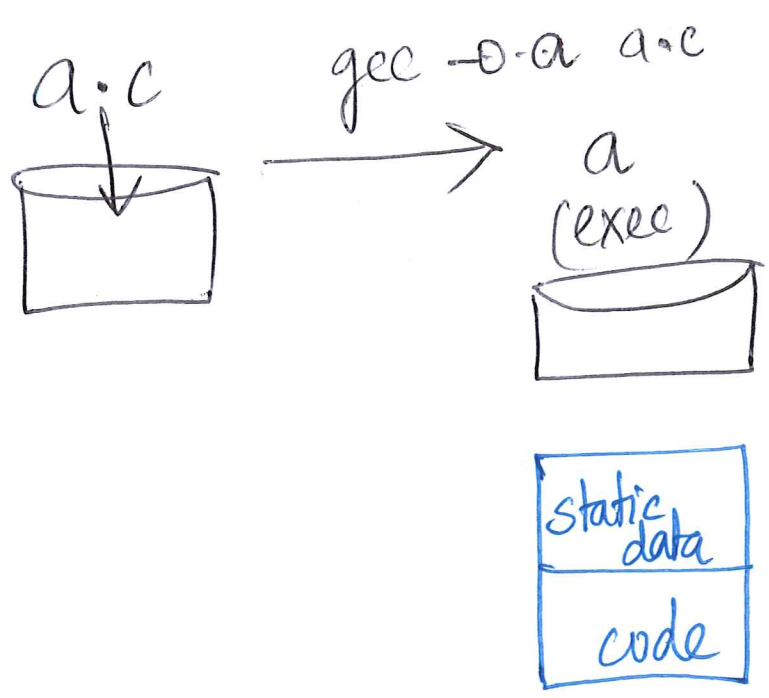 a.c
gcc -o a a.c
a
(exec)
static
data
code